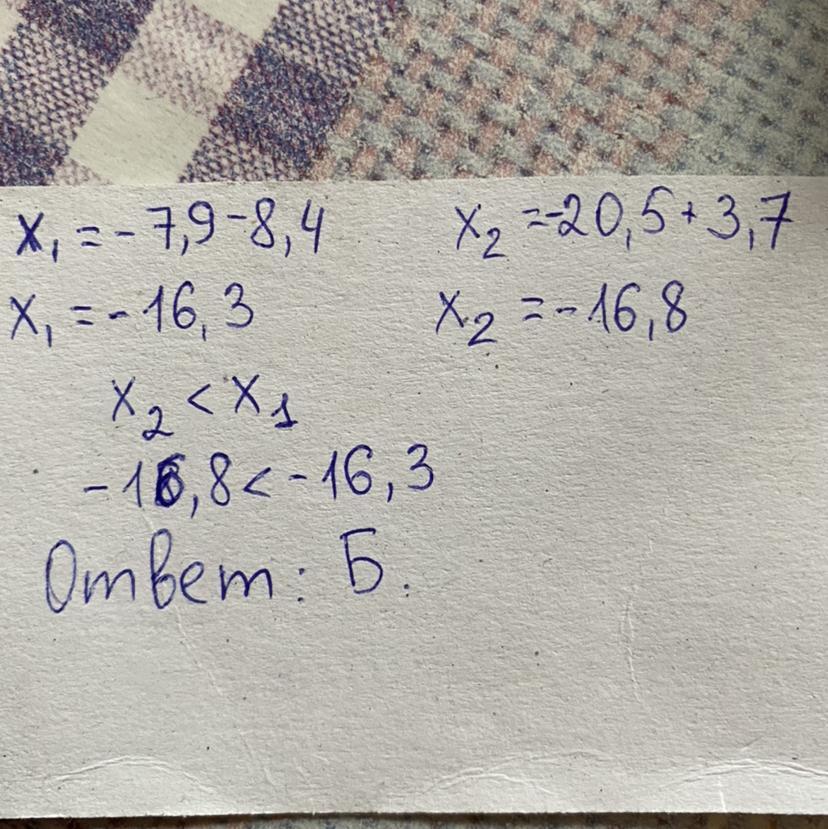 x₁ = -7,9-8,4
x₂ =-20,5+3,7
x₁ = -16,3
x₂ = -16,8
x₂ < x₁
-16,8 < -16,3
Ответ: Б.